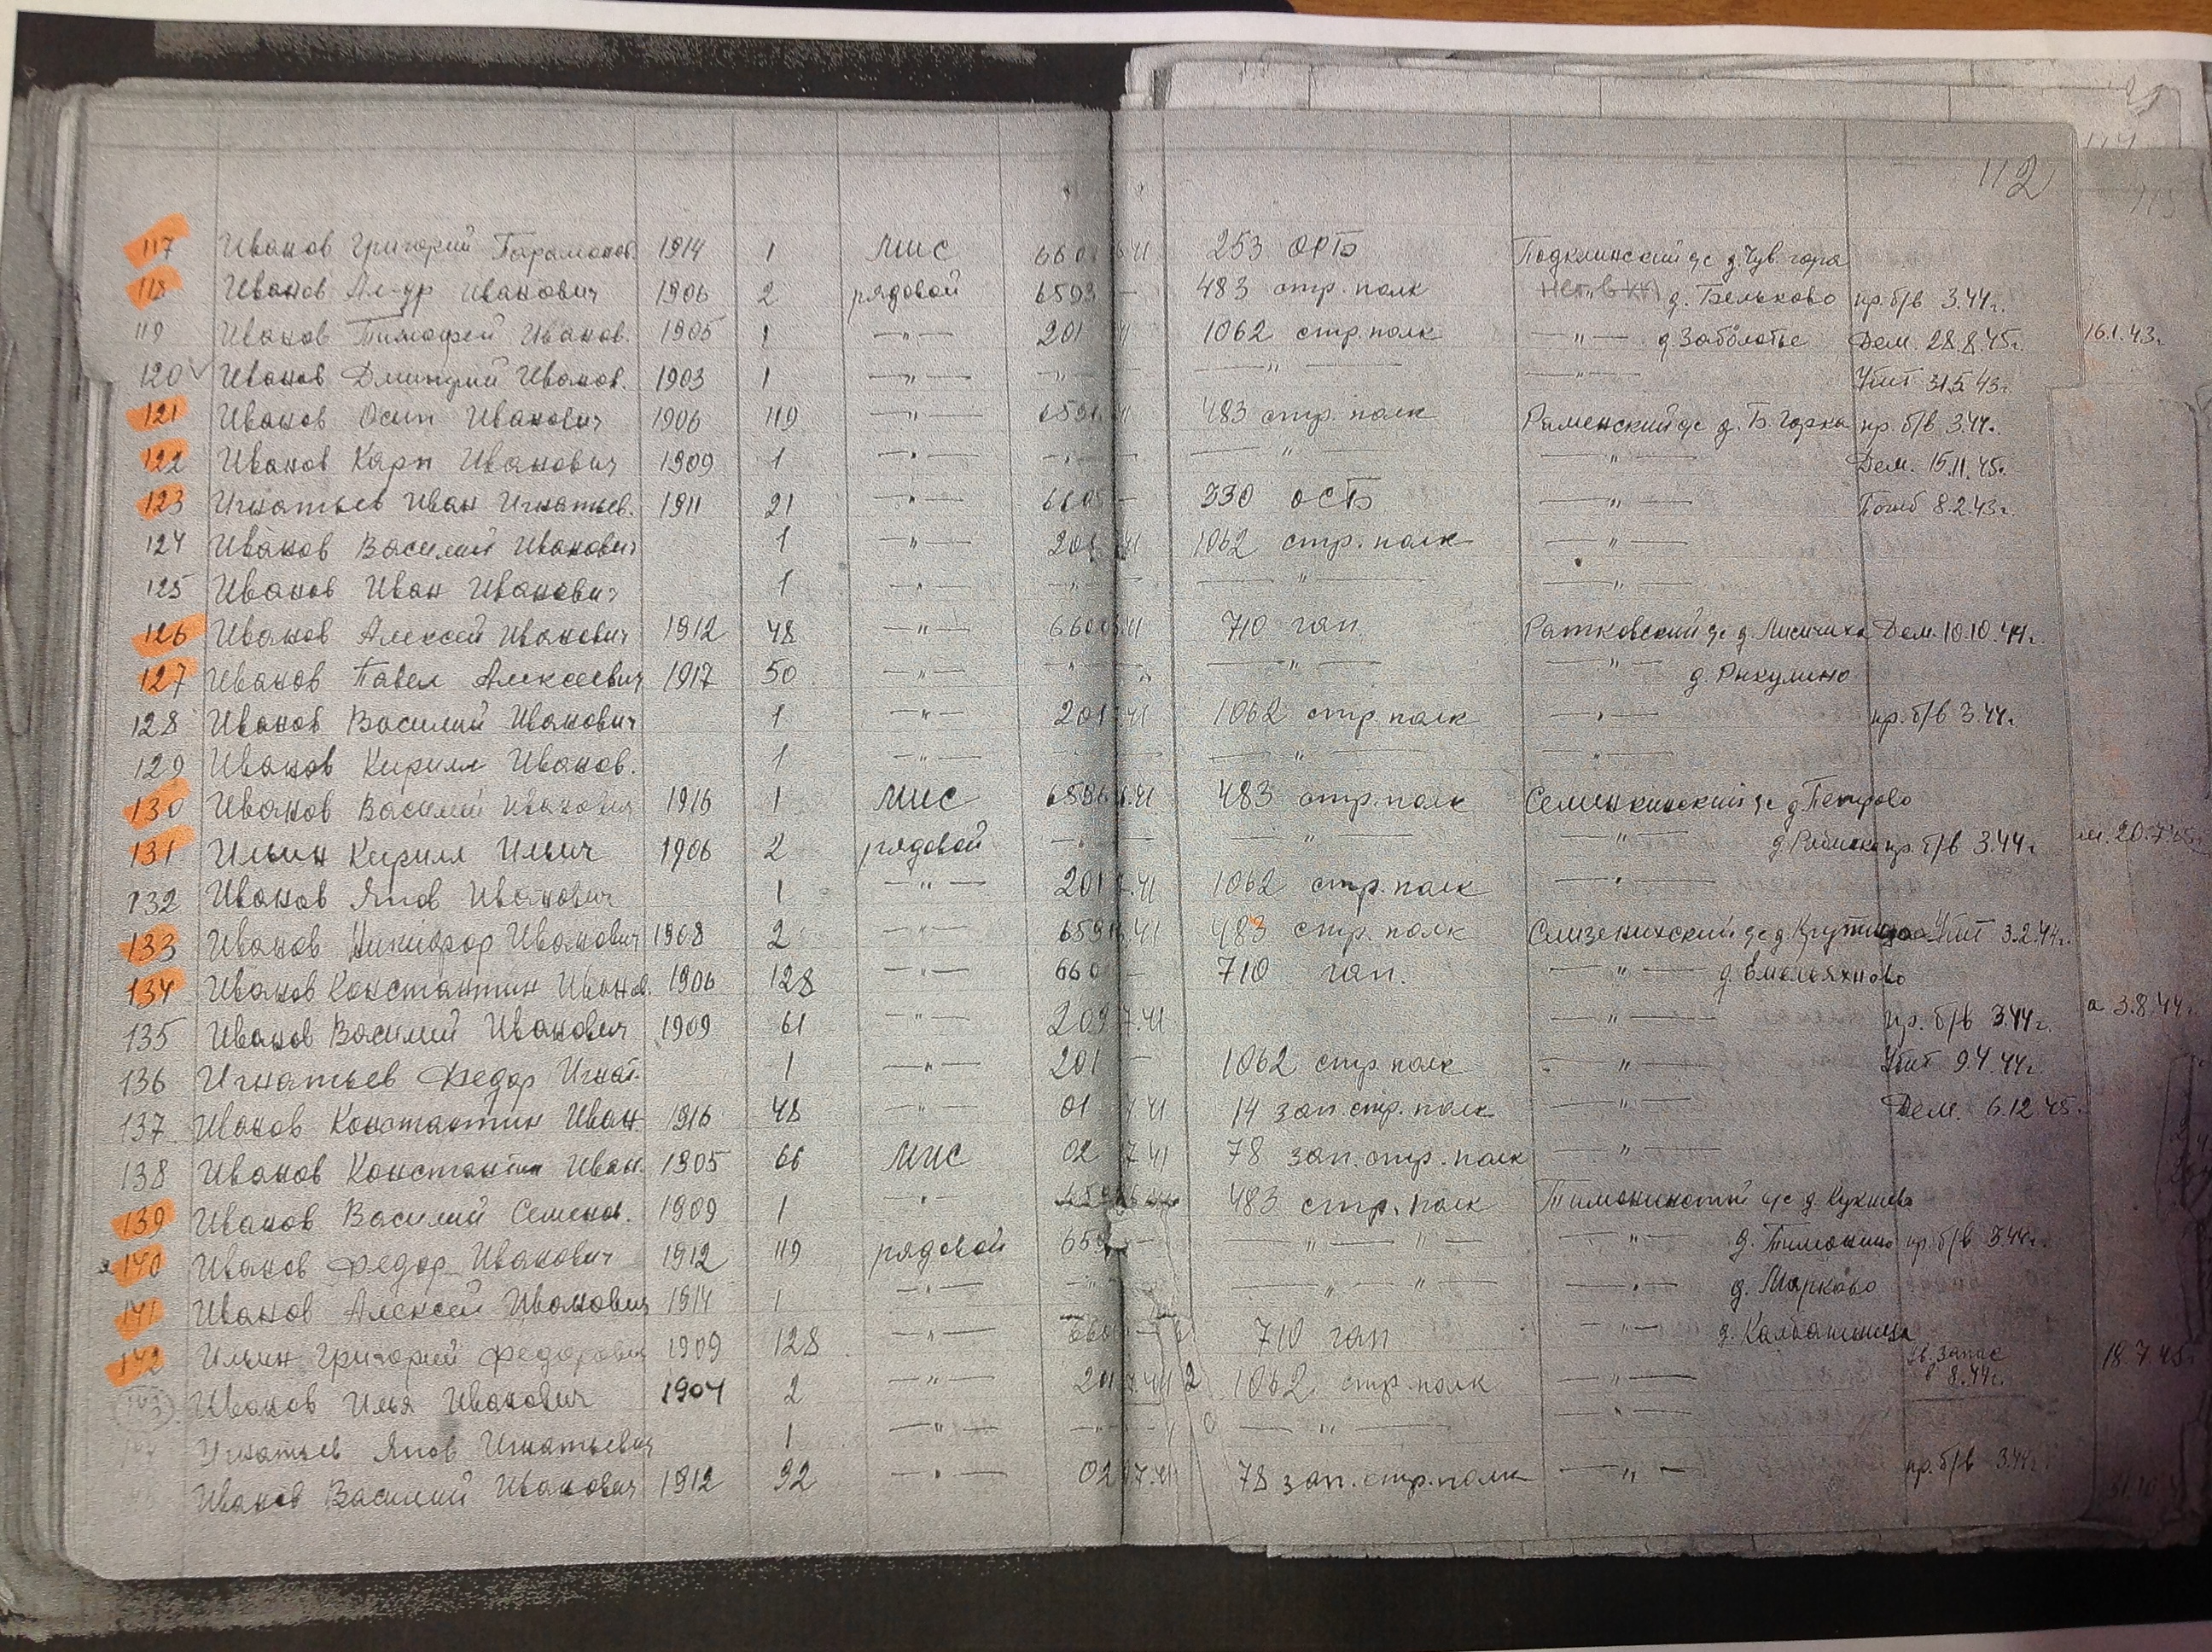 112
117 Иванов Григорий Парамонов. 1914 1 МНС 660 6.41 253 ОРТБ Подклинский с/с д. Чув. гора
118 Иванов Ал-др Иванович 1906 2 рядовой 6593 — 483 стр. полк д. Бельково пр. б/в 3.44г.
119 Иванов Тимофей Иванов. 1905 1 —"— 201 1062 стр. полк —"— д. Заболотье Дем. 28.8.45г. 16.1.43г.
120 Иванов Дмитрий Иванов. 1903 1 —"— —"— —"— —"— Убит 31.5.43г.
121 Иванов Осип Иванович 1906 119 —"— 6591 483 стр. полк Раменский с/с д. Б. Горка пр. б/в 3.44г.
122 Иванов Карп Иванович 1909 1 —"— —"— —"— —"— Дем. 15.11.45г.
123 Игнатьев Иван Игнатьев. 1911 21 —"— 6605 — 330 ОСТБ —"— Погиб 8.2.43г.
124 Иванов Василий Иванович 1 —"— 201 .41 1062 стр. полк —"—
125 Иванов Иван Иванович 1 —"— —"— —"— —"—
126 Иванов Алексей Иванович 1912 48 —"— 6600 .41 710 гап Ратковский с/с д. Лисичиха Дем. 10.10.44г.
127 Иванов Павел Алексеевич 1917 50 —"— —"— —"— —"— д. Рыкулино
128 Иванов Василий Иванович 1 —"— 201 .41 1062 стр. полк —"— пр. б/в 3.44г.
129 Иванов Кирилл Иванов. 1 —"— —"— —"— —"—
130 Иванов Василий Иванович 1916 1 МНС 6596 6.41 483 стр. полк Семенкинский с/с д. Петрово
131 Ильин Кирилл Ильич 1906 2 рядовой —"— —"— —"— пр. б/в 3.44г. 20.7.
132 Иванов Яков Иванович 1 —"— 201 7.41 1062 стр. полк —"—
133 Иванов Никифор Иванович 1908 2 —"— 6591 .41 483 стр. полк Слизенихский с/с д. Убит 3.2.44г.
134 Иванов Константин Иванов. 1906 128 —"— 660 — 710 гап. —"— д. Емельяхново
135 Иванов Василий Иванович 1909 61 —"— 209 7.41 —"— пр. б/в 3.44г. 3.8.44г.
136 Игнатьев Федор Игнат. 1 —"— 201 — 1062 стр. полк —"— Убит 9.4.44г.
137 Иванов Константин Иван. 1916 48 —"— 01 7.41 14 зап. стр. полк —"— Дем. 6.12.45.
138 Иванов Константин Иван. 1905 66 МНС 02 7.41 78 зап. стр. полк —"—
139 Иванов Василий Семенов. 1909 1 " 483 стр. полк Тимонинский с/с д. Кукшево
140 Иванов Федор Иванович 1912 119 рядовой 659 — —"—"— —"— д. Тимонино пр. б/в 3.44г.
141 Иванов Алексей Иванович 1914 1 —"— —"— —"—"— —"— д. Марково
142 Ильин Григорий Федорович 1909 128 —"— 660 — 710 гап —"—
143 Иванов Илья Иванович 1904 2 —"— 201 7.41 1062 стр. полк —"— Ув. запас в 8.44г. 18.7.45г
Игнатьев Яков Игнатьевич 1 —"— —"— —"— —"—
Иванов Василий Иванович 1912 92 —"— 02 7.41 78 зап. стр. полк —"— пр. б/в 3.44г.